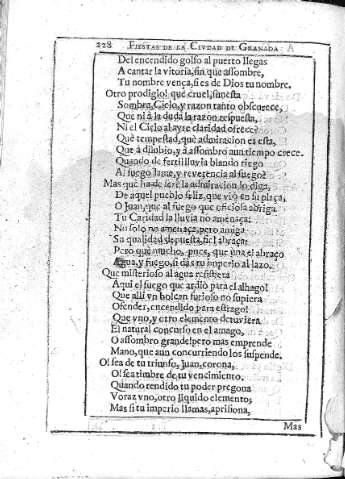 228 FIESTAS DE LA CIVDAD DE GRANADA
Del encendido golfo al puerto llegas
A cantar la vitoria, sin que assombre,
Tu nombre vença, si es de Dios tu nombre.
Otro prodigio! què cruel, funesta
Sombra, Cielo, y razon tanto obscurece,
Que ni à la duda la razon respuesta,
Ni el Cielo al ayre claridad ofrece?
Què tempestad, què admiracion es esta,
Que à dilubio, y à assombro aun tiempo crece.
Quando de fertil lluvia blando riego
Al fuego lame, y reverencia al fuego?
Mas què ha de ser? la admiracion lo diga,
De aquel pueblo feliz, que viò en su plaça,
O Juan, que al fuego que oficiola abriga
Tu Caridad la lluvia no amenaça:
No solo no amenaça, pero amiga
Su qualidad depuesta, fiel abraça:
Pero què mucho, pues, que una el abraço
Agua, y fuego, si dàs tu imperio al lazo.
Que misterioso al agua resistiera
Aqui el fuego que ardiò para el alhago!
Que alli vn bolcan furioso no supiera
Ofender, encendido para estrago!
Que vno, y otro elemento detuviera
El natural concurso en el amago,
O assombro grande! pero mas emprende
Mano, que aun concurriendo los suspende.
O! sea de tu triunfo, Juan, corona,
O! sea timbre de tu vencimiento.
Quando rendido tu poder pregona
Voraz vno, otro liquido elemento,
Mas si tu imperio llamas, aprisiona,
Mas